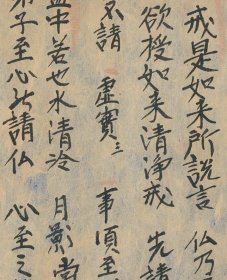 戒是如来所説言 仏乃
欲授如来清浄戒 先請
不請 虚實三 事須至
中若也水清冷 月影當
弟子至心請仏 心至